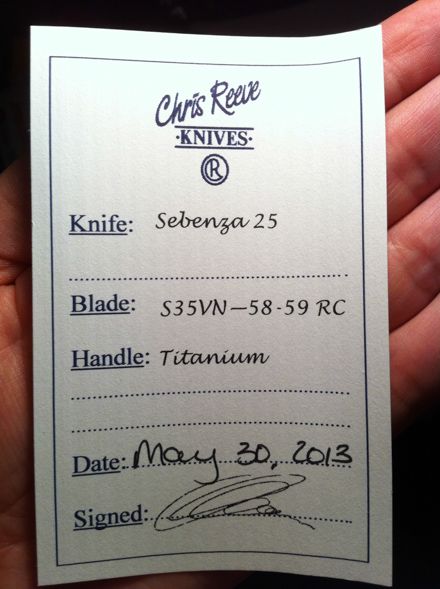 Chris Reeve
·KNIVES·
R
Knife: Sebenza 25
Blade: S35VN—58-59 RC
Handle: Titanium
Date: May 30, 2013
Signed: